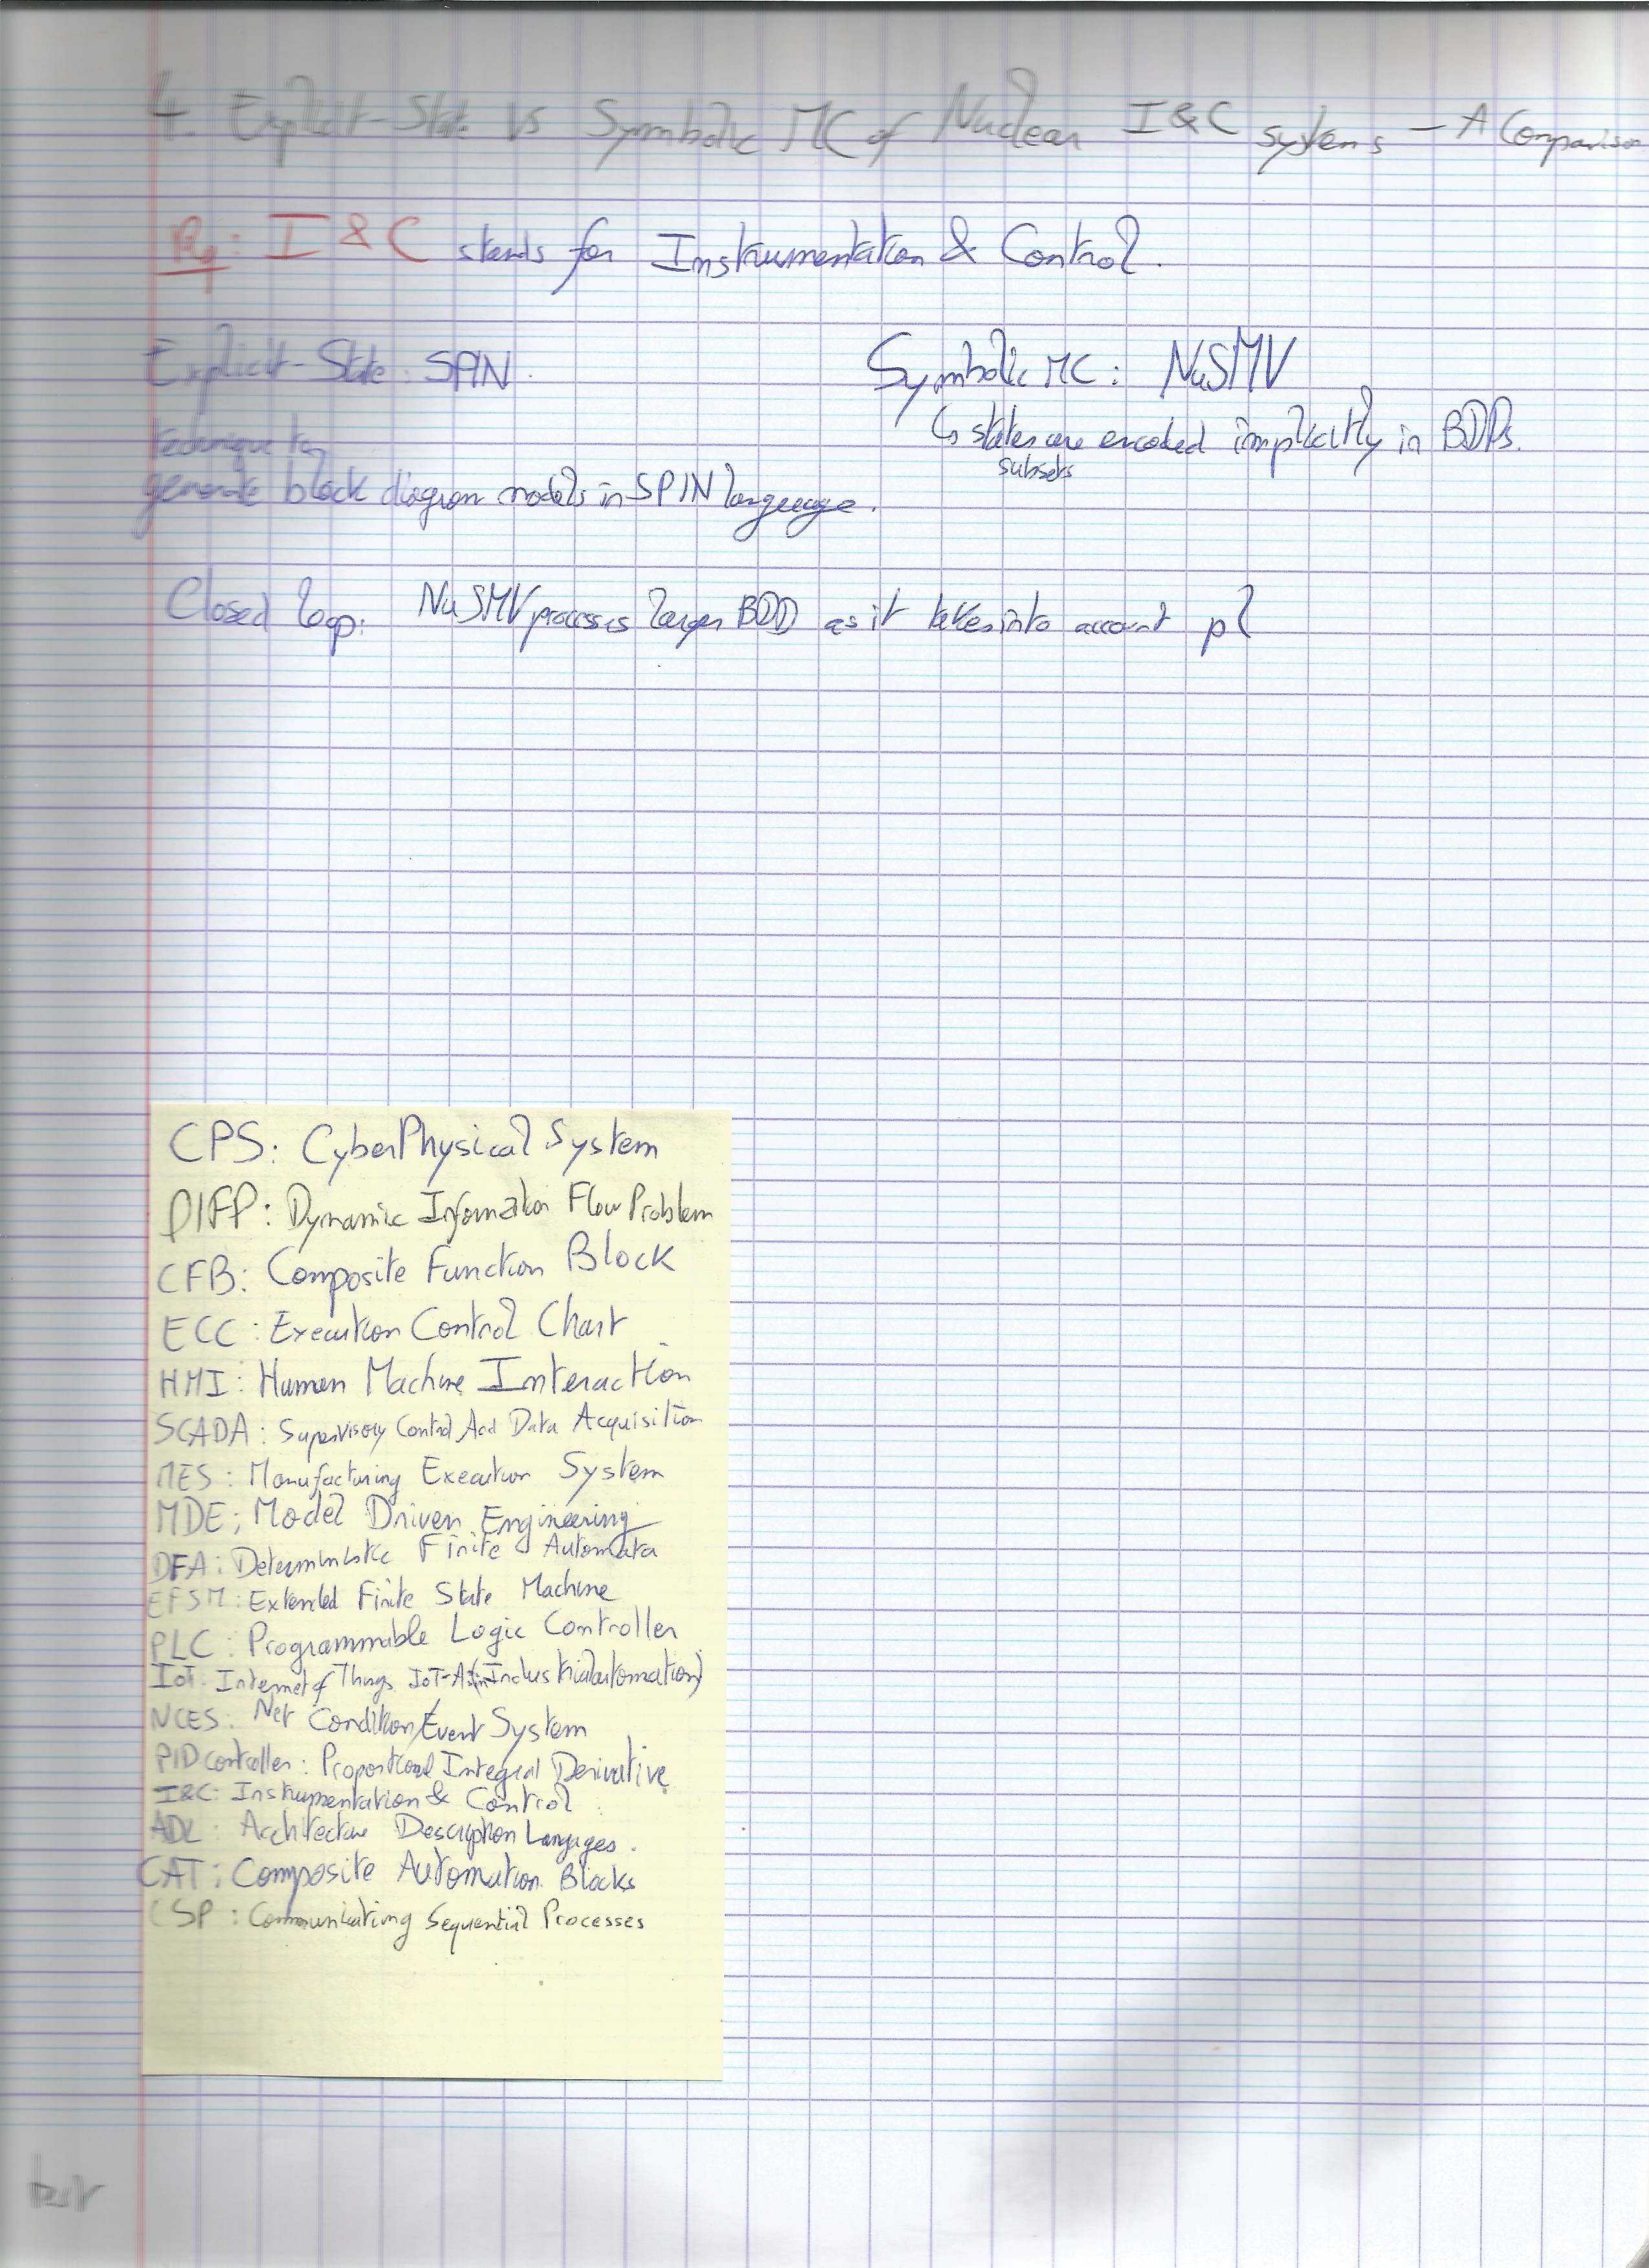 4. Explicit-State vs Symbolic MC of Nuclear I&C systems - A Comparison
Rq: I & C stands for Instrumentation & Control.
Explicit-State: SPIN.
Symbolic MC: NuSMV
↳ states are encoded implicitly in BDDs.
subsets
technique to
generate block diagram models in SPIN language.
Closed loop: NuSMV processes larger BDD as it takes into account
CPS: CyberPhysical System
DIFP: Dynamic Information Flow Problem
CFB: Composite Function Block
ECC: Execution Control Chart
HMI: Human Machine Interaction
SCADA: Supervisory Control And Data Acquisition
MES: Manufacturing Execution System
MDE: Model Driven Engineering
DFA: Deterministic Finite Automata
EFSM: Extended Finite State Machine
PLC: Programmable Logic Controller
IoT: Internet of Things IoT-A (Industrial automation)
NCES: Net Condition/Event System
PID controller: Proportional Integral Derivative
I&C: Instrumentation & Control
ADL: Architecture Description Languages.
CAT: Composite Automation Blocks
CSP: Communicating Sequential Processes